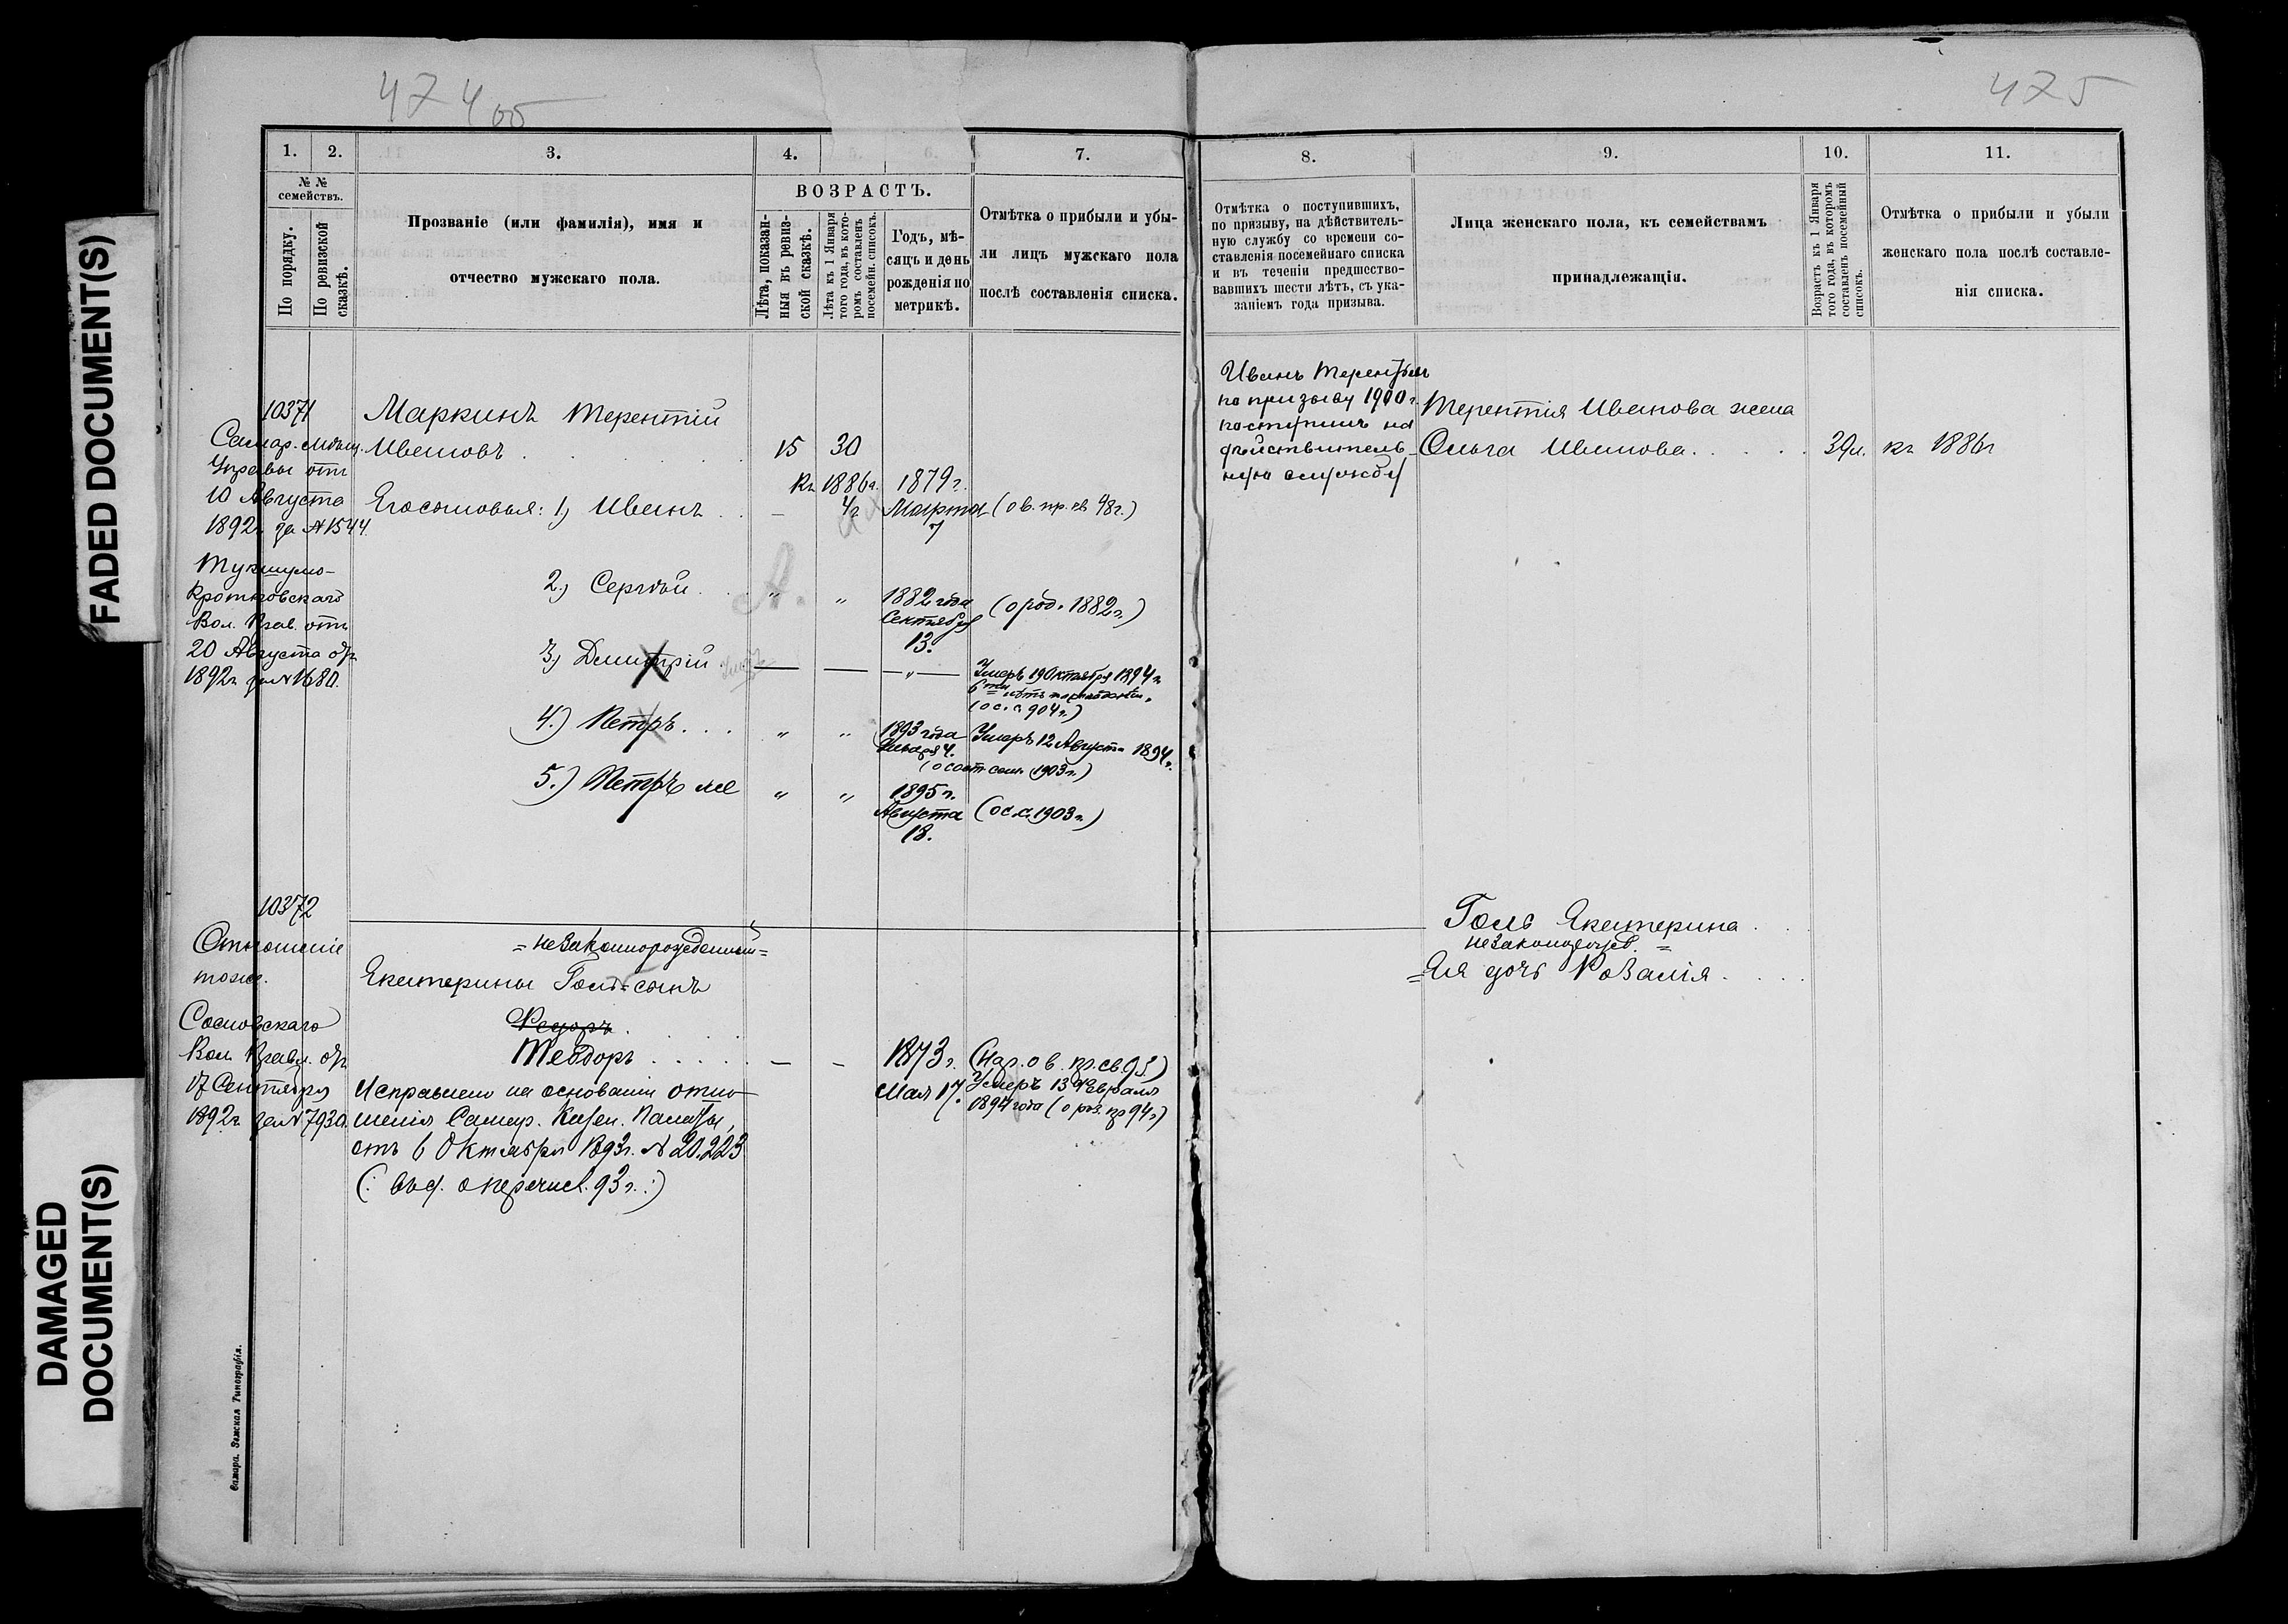 FADED DOCUMENT(S)
DAMAGED
DOCUMENT(S)
474об
1.
2.
3.
4.
5.
6.
7.
№ №
семействъ.
По порядку.
По ревизской
сказкѣ.
Прозваніе (или фамилія), имя и
отчество мужскаго пола.
ВОЗРАСТЪ.
Лѣта, показан-
ныя въ ревиз-
ской сказкѣ.
Лѣта къ 1 Января
того года, въ кото-
ромъ составленъ
посемейн. списокъ.
Годъ, мѣ-
сяцъ и день
рожденія по
метрикѣ.
Отмѣтка о прибыли и убы-
ли лицъ мужскаго пола
послѣ составленія списка.
10371
Самар. Мѣщ.
Управы отъ
10 Августа
1892г. за №1544.
Кротковскаго
Вол. Прав. отъ
20 Августа
1892г. за №1680.
Маркинъ Терентій
Ивановъ
15
30
къ 1886г.
Его сыновья: 1) Иванъ
4г.
1879г.
Марта
7
(о в. пр. св. 98г.)
2) Сергѣй
"
"
1882 года
Сентября
13.
(о род. 1882г.)
3) Дмитрій
"
Умеръ 19 Октября 1894г.
(о с. с. 904г.)
4.) Петръ
"
"
1893 года
Января 4.
Умеръ 12 Августа 1894г.
(о сост. сем. 1903г.)
5.) Петръ же
"
"
1895г.
Августа
18.
(о с. с. 1903г.)
10372
Отношеніе
тоже.
Сосновскаго
Вол. Правл.
17 Сентября
1892г. за №7930.
=незаконнорожденный=
Екатерины Голь=сынъ
Федоръ
Теодоръ
1873г.
Мая 17.
Умеръ 13 Февраля
1894 года
Исправлено на основаніи отно-
шенія Самар. Казен. Палаты,
отъ 6 Октября 1893г. №20.223
(: вѣд. о перечисл. 93г. :)
Самара. Земская Типографія.
475
8.
9.
10.
11.
Отмѣтка о поступившихъ,
по призыву, на дѣйствитель-
ную службу со времени со-
ставленія посемейнаго списка
и въ теченіи предшество-
вавшихъ шести лѣтъ, съ ука-
заніемъ года призыва.
Лица женскаго пола, къ семействамъ
принадлежащія.
Возрастъ къ 1 Января
того года, въ которомъ
составленъ посемейный
списокъ.
Отмѣтка о прибыли и убыли
женскаго пола послѣ составле-
нія списка.
Иванъ Терентьев
по призыву 1900г.
поступилъ на
дѣйствитель-
ную службу
Терентія Иванова жена
Ольга Иванова
39л.
къ 1886г
Голь Екатерина
незаконорожд.
=Ея дочь Розалія